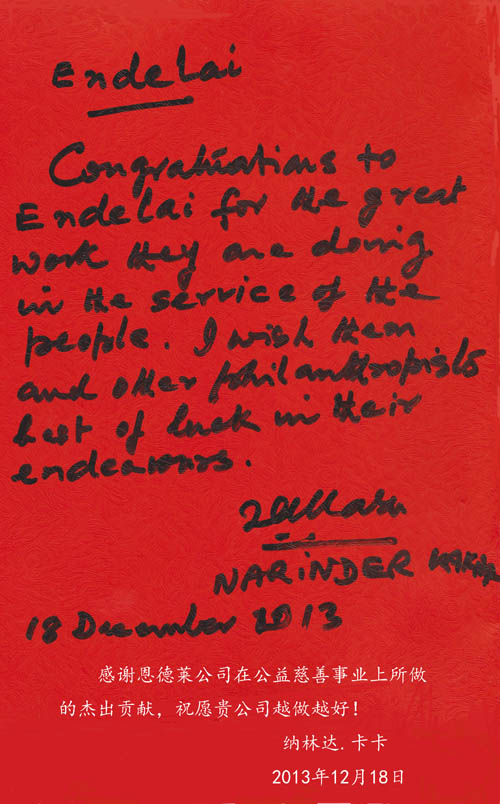 Endelai
Congratuations to
Endelai for the great
work they are doing
in the service of the
people. I wish them
and other philanthropists
best of luck in their
endeavours.
NARINDER KAKAR
18 December 2013
感谢恩德莱公司在公益慈善事业上所做
的杰出贡献，祝愿贵公司越做越好！
纳林达.卡卡
2013年12月18日